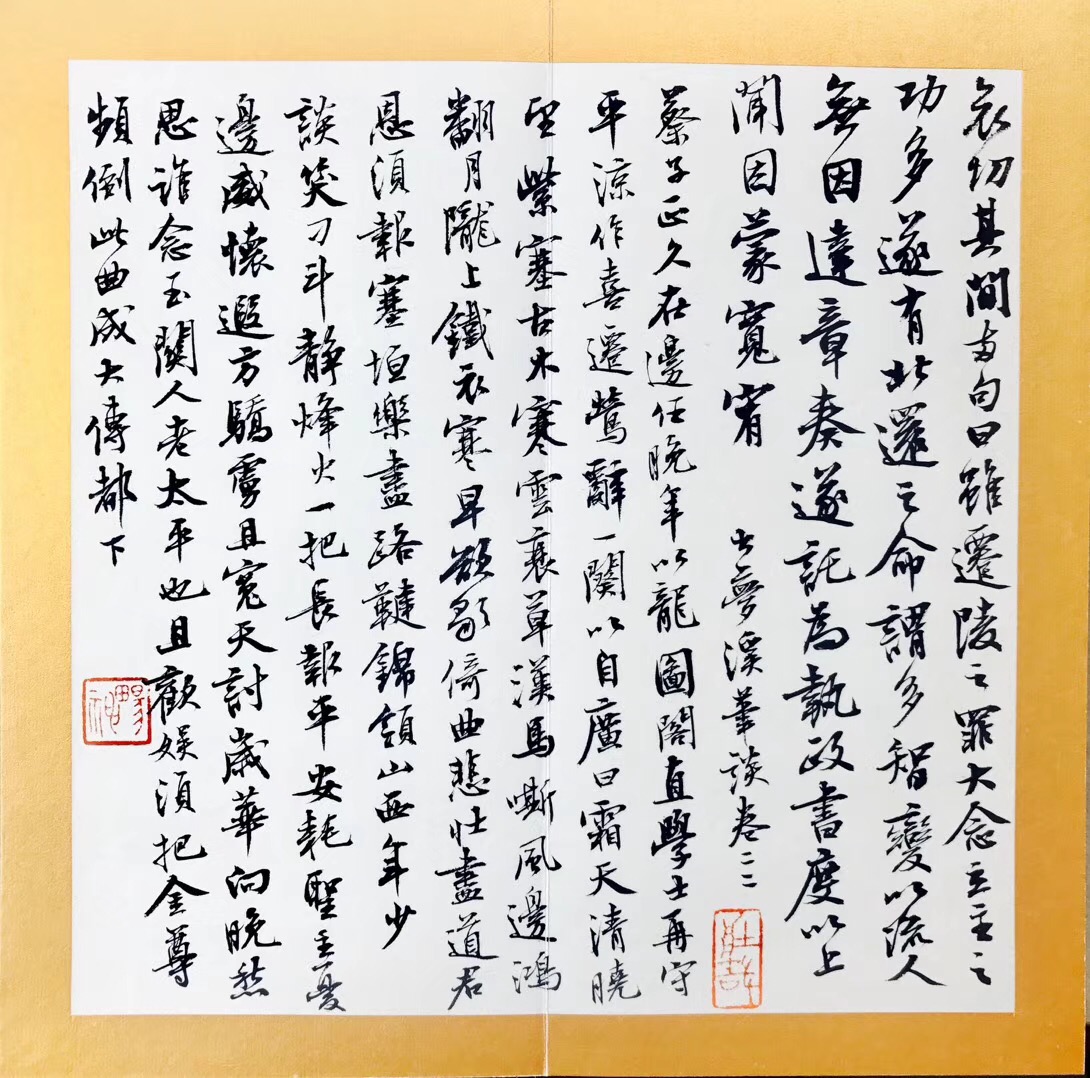 哀切其間兩句曰雖遷陵之罪大念立主之
功多遂有北還之命謂多智變以流人
無因達章奏遂託為執政書度以上
聞因蒙寬宥
書夢溪筆談卷二二
蔡子正久在邊任晚年以龍圖閣直學士再守
平涼作喜遷鶯辭一闋以自廣曰霜天清曉
望紫塞古木寒雲衰草漢馬嘶風邊鴻
翻月隴上鐵衣寒早劍歌倚曲悲壯盡道君
恩須報塞垣樂盡櫜鞬錦領山西年少
談笑刁斗靜烽火一把長報平安耗聖主憂
邊威懷遐方驕虜且寬天討歲華向晚愁
思誰念玉關人老太平也且歡娛須把金尊
頻倒此曲成大傳都下